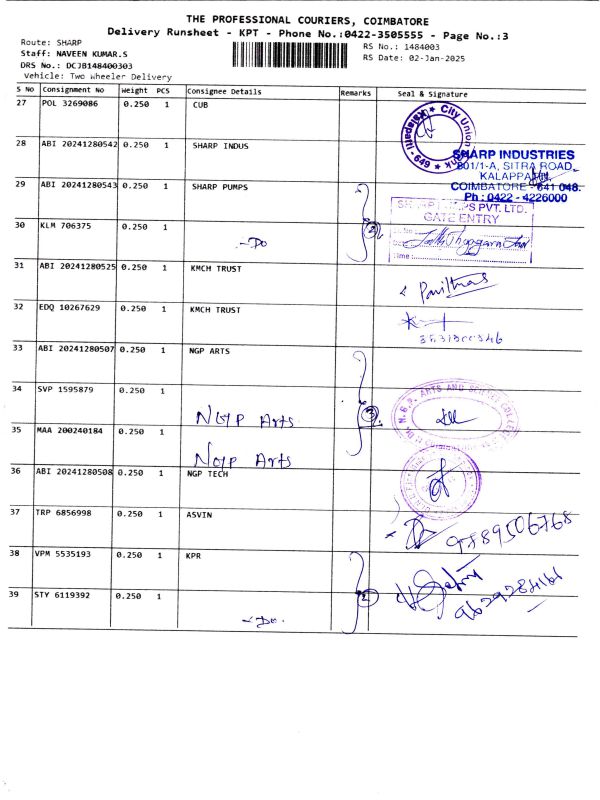 THE PROFESSIONAL COURIERS, COIMBATORE
Delivery Runsheet - KPT - Phone No.:0422-3505555 - Page No.:3
Route: SHARP
RS No.: 1484003
Staff: NAVEEN KUMAR.S
RS Date: 02-Jan-2025
DRS No.: DCJB148400303
Vehicle: Two Wheeler Delivery
S No Consignment No Weight PCS Consignee Details Remarks Seal & Signature
27 POL 3269086 0.250 1 CUB
City Union
Kalapatti - 649
28 ABI 20241280542 0.250 1 SHARP INDUS
SHARP INDUSTRIES
801/1-A, SITRA ROAD,
KALAPPATTI,
COIMBATORE - 641 048.
Ph : 0422 - 4226000
29 ABI 20241280543 0.250 1 SHARP PUMPS
SHARP PUMPS PVT. LTD.
GATE ENTRY
30 KLM 706375 0.250 1 -Do 2
Time :
31 ABI 20241280525 0.250 1 KMCH TRUST
32 EDQ 10267629 0.250 1 KMCH TRUST
33 ABI 20241280507 0.250 1 NGP ARTS
34 SVP 1595879 0.250 1 NGP Arts 3
ARTS AND SCIENCE COLLEGE
35 MAA 200240184 0.250 1 NGP Arts
36 ABI 20241280508 0.250 1 NGP TECH
37 TRP 6856998 0.250 1 ASVIN
9789506768
38 VPM 5535193 0.250 1 KPR
39 STY 6119392 0.250 1 -Do. 2